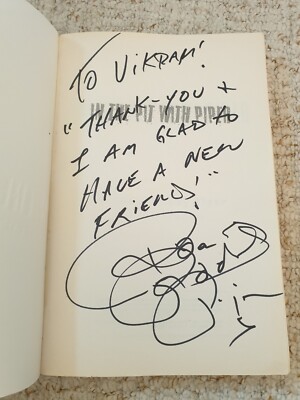 TO VIKRAM!
IN THE PIT WITH PIPER
"THANK-YOU +
I AM GLAD TO
HAVE A NEW
FRIEND!"